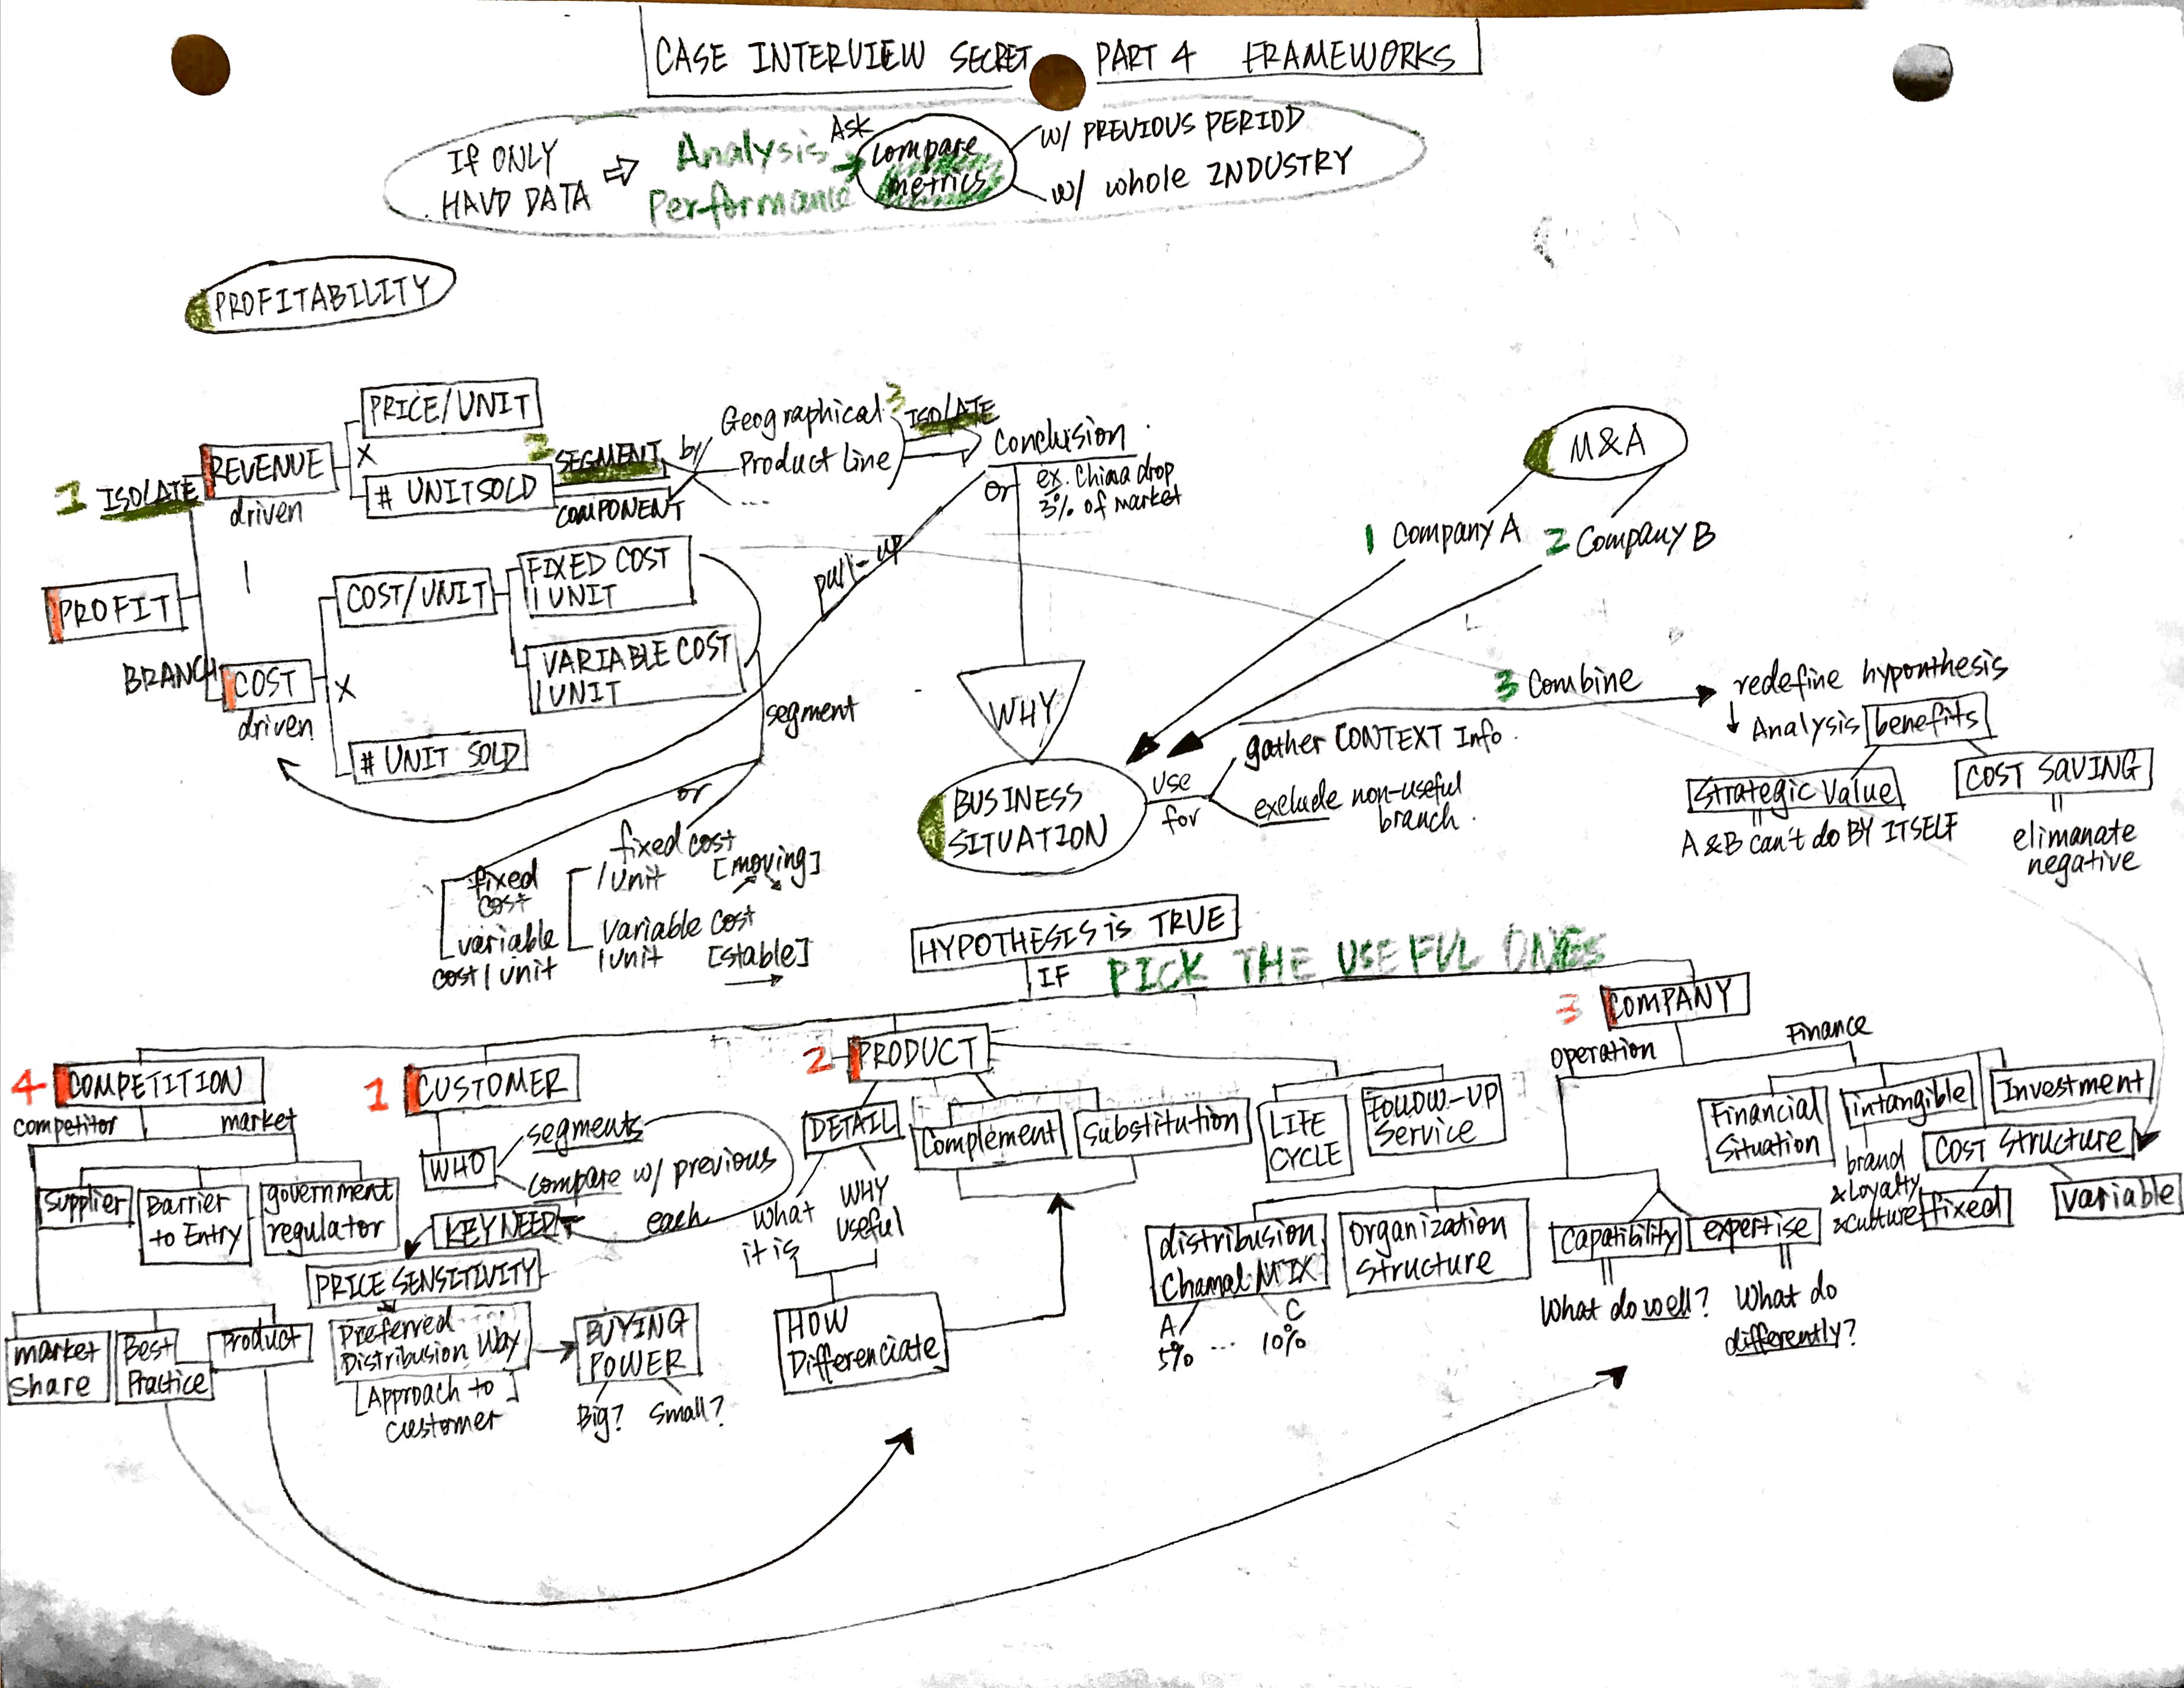 CASE INTERVIEW SECRET PART 4 FRAMEWORKS
If ONLY
HAVD DATA
⇨
Analysis
Performance
Ask
Compare
metrics
w/ PREVIOUS PERIOD
w/ whole INDUSTRY
PROFITABILITY
1 ISOLATE
PROFIT
BRANCH
REVENUE
driven
PRICE/UNIT
X
# UNIT SOLD
2 SEGMENT
COMPONENT
by
Geographical
Product Line
...
3 ISOLATE
Conclusion
or
ex. China drop
3% of market
pull-up
COST
driven
COST/UNIT
X
# UNIT SOLD
FIXED COST
/ UNIT
VARIABLE COST
/ UNIT
segment
or
fixed
cost
variable
cost / unit
fixed cost
/ unit [moving]
variable cost
/ unit [stable]
WHY
BUSINESS
SITUATION
use
for
gather CONTEXT Info.
exclude non-useful
branch.
M&A
1 Company A
2 Company B
3 Combine
redefine hyponthesis
Analysis benefits
Strategic Value
A & B can't do BY ITSELF
COST SAVING
elimanate
negative
HYPOTHESIS is TRUE
IF
PICK THE USEFUL ONES
4 COMPETITION
competitor
market
Supplier
Barrier
to Entry
government
regulator
market
share
Best
Practice
Product
1 CUSTOMER
WHO
segments
compare w/ previous
each
KEY NEED
PRICE SENSITIVITY
Preferred
Distribusion Way
[Approach to]
customer
BUYING
POWER
Big? Small?
2 PRODUCT
DETAIL
what
it is
WHY
useful
HOW
Differenciate
Complement
Substitution
LIFE
CYCLE
FOLLOW-UP
Service
3 COMPANY
operation
Finance
distribusion
Channal MIX
A
5%
...
C
10%
Organization
Structure
Capatibility
What do well?
expertise
What do
differently?
Financial
Situation
intangible
brand
& Loyalty
& culture
Investment
COST Structure
fixed
variable